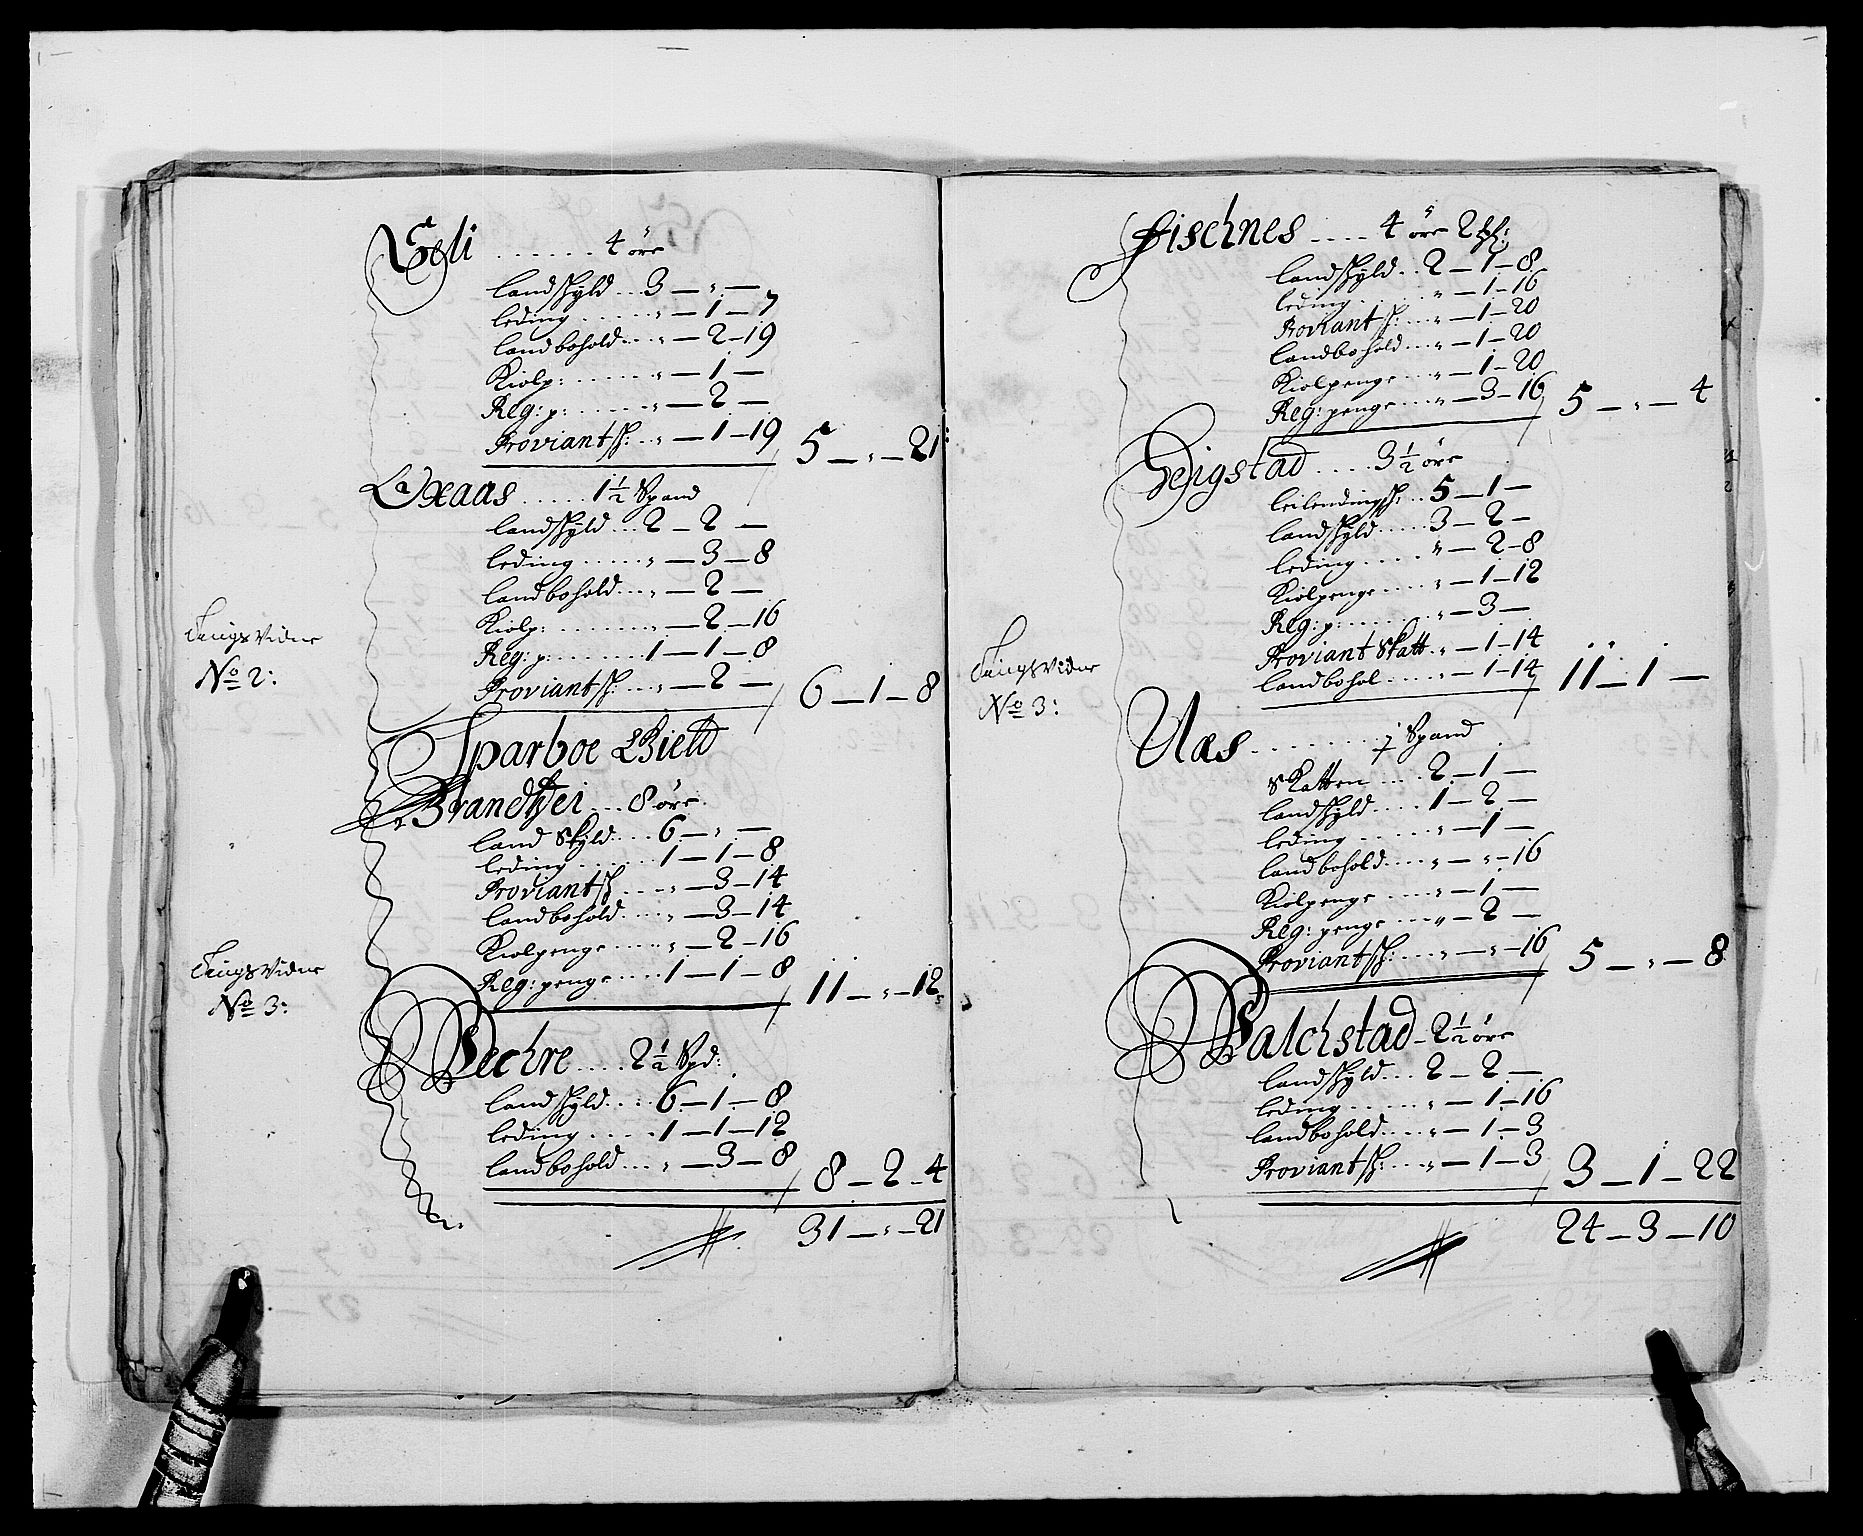 Eeli ...... 4 öre
landskyld ... 3 — " —
leding ...... " — 1 — 7
landbohold ... " — 2 — 19
Kiolp: ...... " — 1 —
Reg: p: ...... " — 2 —
Proviantsk: .. " — 1 — 19 5 — " — 21
Oxaas ..... 1½ Spand
landskyld ... 2 — 2 —
leding ..... " — 3 — 8
landbohold ... " — 2 —
Tings Vidne
Kiolp: ....... " — 2 — 16
No 2:
Reg: p: ....... 1 — 1 — 8
Proviantsk: ... " — 2 — 6 — 1 — 8
Sparboe Gield
Brandhei ... 8 öre
land Skyld ... 6 — " —
leding ...... 1 — 1 — 8
Proviantsk .... " — 3 — 14
landbohold .... " — 3 — 14
Kiolpenge ..... " — 2 — 16
Tings Vidne
Reg: penge ..... 1 — 1 — 8 11 — " — 12
No 3:
Vechre .... 2½ Spd:
landskyld .... 6 — 1 — 8
leding ..... 1 — 1 — 12
landbohold ... " — 3 — 8 8 — 2 — 4
31 — " — 21
Fischnes .... 4 öre 2
landskyld .. 2 — 1 — 8
leding ..... " — 1 — 16
Proviantsk: ... " — 1 — 20
landbohold ... " — 1 — 20
Kiolpenge ... " — 1 — 20
Reg: penge ... " — 3 — 16 5 — " — 4
Gejgstad .... 3½ öre
leilendingsk: .. 5 — 1 —
landskyld ..... 3 — 2 —
leding ..... " — 2 — 8
Kiolpenge ..... " — 1 — 12
Reg: p: ........ " — 3 —
Tings Vidne
Proviant Skatt .. " — 1 — 14
No 3:
landbohol ..... " — 1 — 14 11 — 1 —
Uaes ......... 1 Spand
Skatten .... 2 — 1 —
landskyld .... 1 — 2 —
leding ....... " — 1 —
landbohold .... " — " — 16
Kiolpenge ..... " — 1 —
Reg: penge .... " — 2 —
Proviantsk: .... " — " — 16 5 — " — 8
Valchstad — 2½ öre
landskyld ... 2 — 2 —
leding ....... " — 1 — 16
landbohold .... " — 1 — 3
Proviantsk: .... " — 1 — 3 3 — 1 — 22
24 — 3 — 10